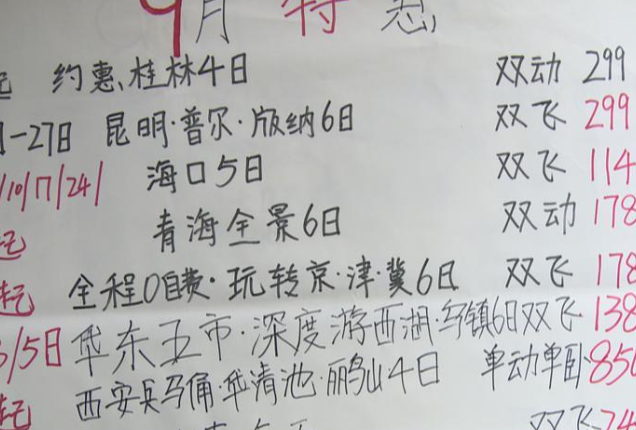 9月特惠
起 约惠、桂林4日 双动 299
27日 昆明·普尔·版纳6日 双飞 299
/10/17/24/ 海口5日 双飞 114
起 青海全景6日 双动 178
起 全程0自费·玩转京·津·冀6日 双飞 178
/5日 华东五市·深度游西湖·乌镇6日双飞 138
起 西安兵马俑·华清池·骊山4日 单动单卧 850
双飞 24